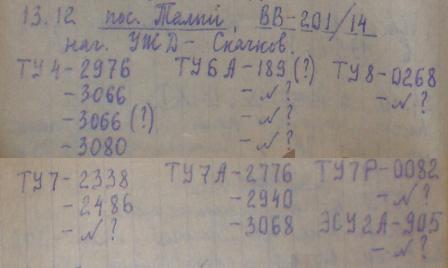 13.12 пос. Талый, ВВ-201/14
нач. УЖД- Скачков.
ТУ4-2976 ТУ6А-189(?) ТУ8-0268
-3066 -№? -№?
-3066(?) -№?
-3080 -№?
ТУ7-2338 ТУ7А-2776 ТУ7Р-0082
-2486 -2940 -№?
-№? -3068 ЭСУ2А-905
-№?